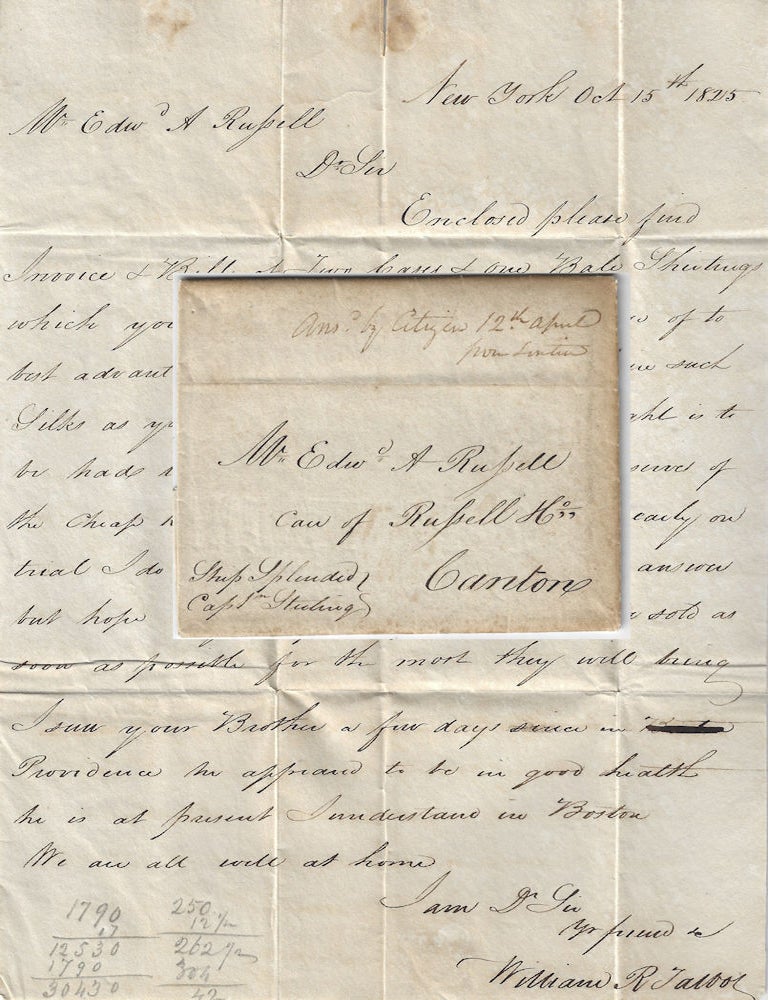 New York Oct 15th 1825
Mr Edwd A Russell
Dr Sir
Enclosed please find
Invoice & Bill Two Cases & one Bale Shirtings
which you of to
best advant such
Silks as is to
be had of
the Cheap early on
trial I do answer
but hope sold as
soon as possible for the most they will bring
I saw your Brother a few days since in
Providence he appeard to be in good health
he is at present I understand in Boston
We are all well at home
I am Dr Sir
Yr friend &c
William R Talbot
Ansd by Citizen 12th April
from Lintin
Mr Edwd A Russell
care of Russell & Co
Canton
Ship Splendid
Captn Sterling
1790
17
12530
1790
30430
250
12 1/2
262 1/2
304
42